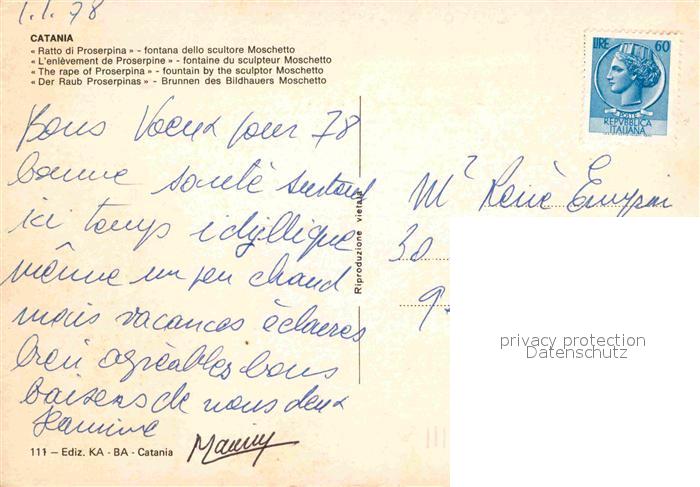 1.1.78
CATANIA
« Ratto di Proserpina » - fontana dello scultore Moschetto
« L'enlèvement de Proserpine » - fontaine du sculpteur Moschetto
« The rape of Proserpina » - fountain by the sculptor Moschetto
« Der Raub Proserpinas » - Brunnen des Bildhauers Moschetto
LIRE 60
POSTE
REPVBBLICA
ITALIANA
Bons Voeux pour 78
bonne santé surtout
ici temps idyllique
même un peu chaud
mais vacances éclaires
bien agréables bons
baisers de nous deux
Jeannine
Reproduzione vietata
Mr René
30
9
privacy protection
Datenschutz
111 – Ediz. KA - BA - Catania